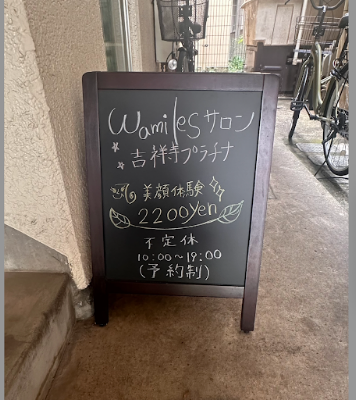 Wamilesサロン
吉祥寺プラチナ
美顔体験
2200yen
不定休
10:00~19:00
(予約制)